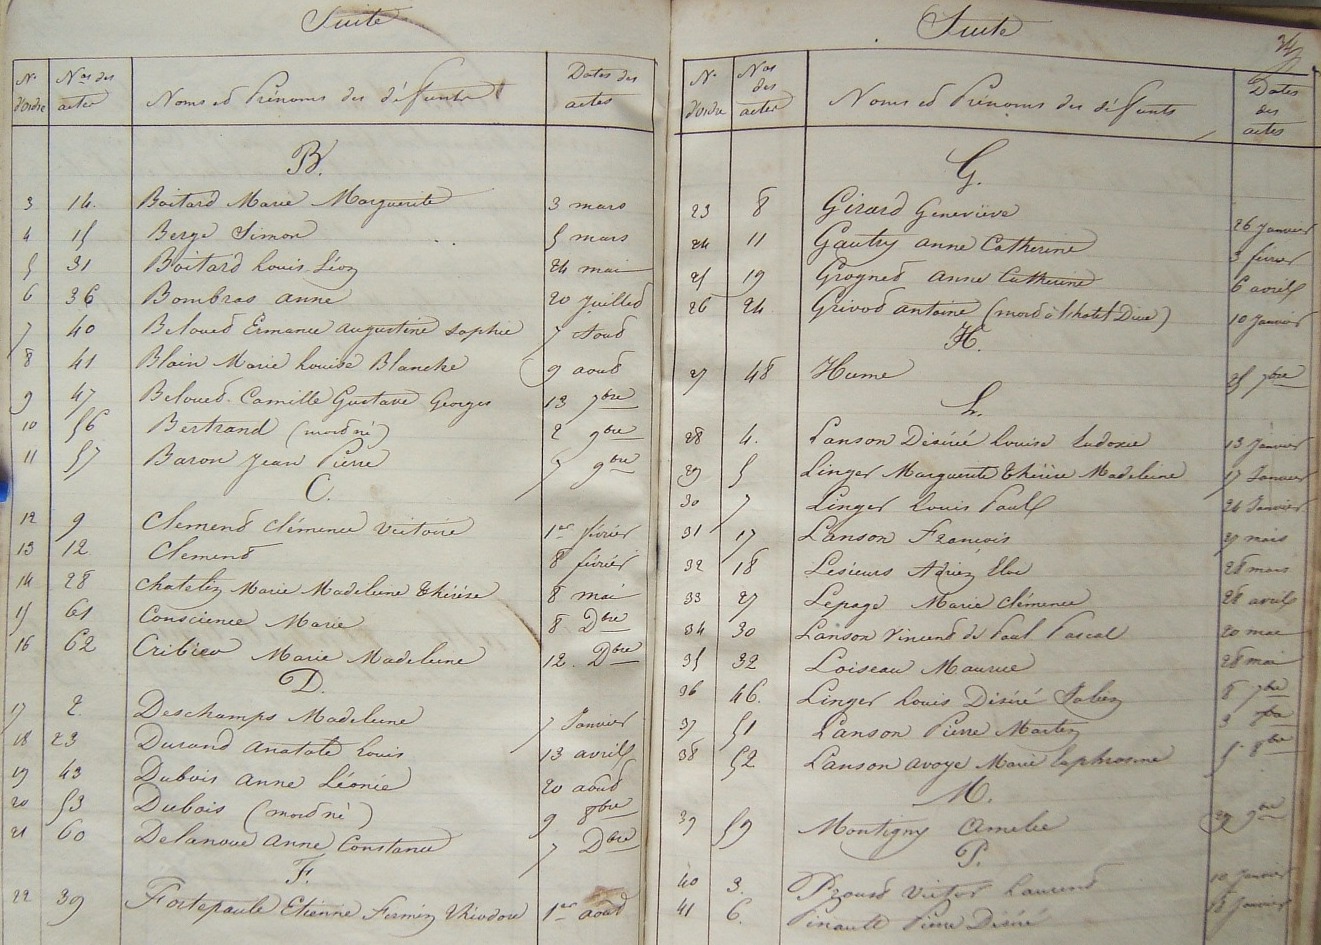 Suite
N° d'ordre Nos des actes Noms et Prénoms des défunts Dates des actes
B.
3 14. Boitard Marie Marguerite 3 mars
4 15 Berge Simon 5 mars
5 31 Boitard Louis Léon 24 mai
6 36 Bombras anne 20 juillet
7 40 Beloued Ermance augustine Sophie 7 Aoud
8 41 Blain Marie Louise Blanche 9 aoud
9 47 Beloued Camille Gustave Georges 13 7bre
10 56 Bertrand (mord né) 2 9bre
11 57 Baron Jean Pierre 7 9bre
C.
12 9 Clemend Clémence Victoire 1er février
13 12 Clemend 8 février
14 28 Chatelin Marie Madeleine Thérèse 8 mai
15 61 Conscience Marie 8 Dbre
16 62 Marie Madeleine 12. Dbre
D.
17 2. Deschamps Madeleine 7 Janvier
18 23 Durand anatole Louis 13 avril
19 43 Dubois anne Léonie 20 aoud
20 53 Dubois (mord né) 9 8bre
21 60 Delanoue anne Constance 7 Dbre
F.
22 39 Fortepaule Etienne Fermin Théodore 1er aoud
Suite
N° d'ordre Nos des actes Noms et Prénoms des défunts Dates des actes
G.
23 8 Girard Geneviève 26 Janvier
24 11 Gautry anne Catherine 3 février
25 19 Grogned anne Catherine 6 avril
26 24 Grivod antoine (mord à l'hotel Dieu) 10 Janvier
H.
27 48 Hume 25 7bre
L.
28 4. Lanson Désiré Louise Ludoxie 13 Janvier
29 5 Linger Marguerite Thérèse Madeleine 17 Janvier
30 7 Linger Louis Paul 24 Janvier
31 17 Lanson François 27 mars
32 18 Lesieurs Adrien Eloi 28 mars
33 27 Lepage Marie Clémence 28 avril
34 30 Lanson Vincend de Paul Pascal 20 mai
35 32 Loiseau Maurice 28 mai
36 46. Linger Louis Désiré 8 7bre
37 51 Lanson Pierre Martin 3
38 52 Lanson avoye Marie Euphrosine 5 8bre
M.
39 59 Montigny Amelie 27 9bre
P.
40 3. Victor Laurend 10 Janvier
41 6. Pinault Pierre Désiré 18 Janvier